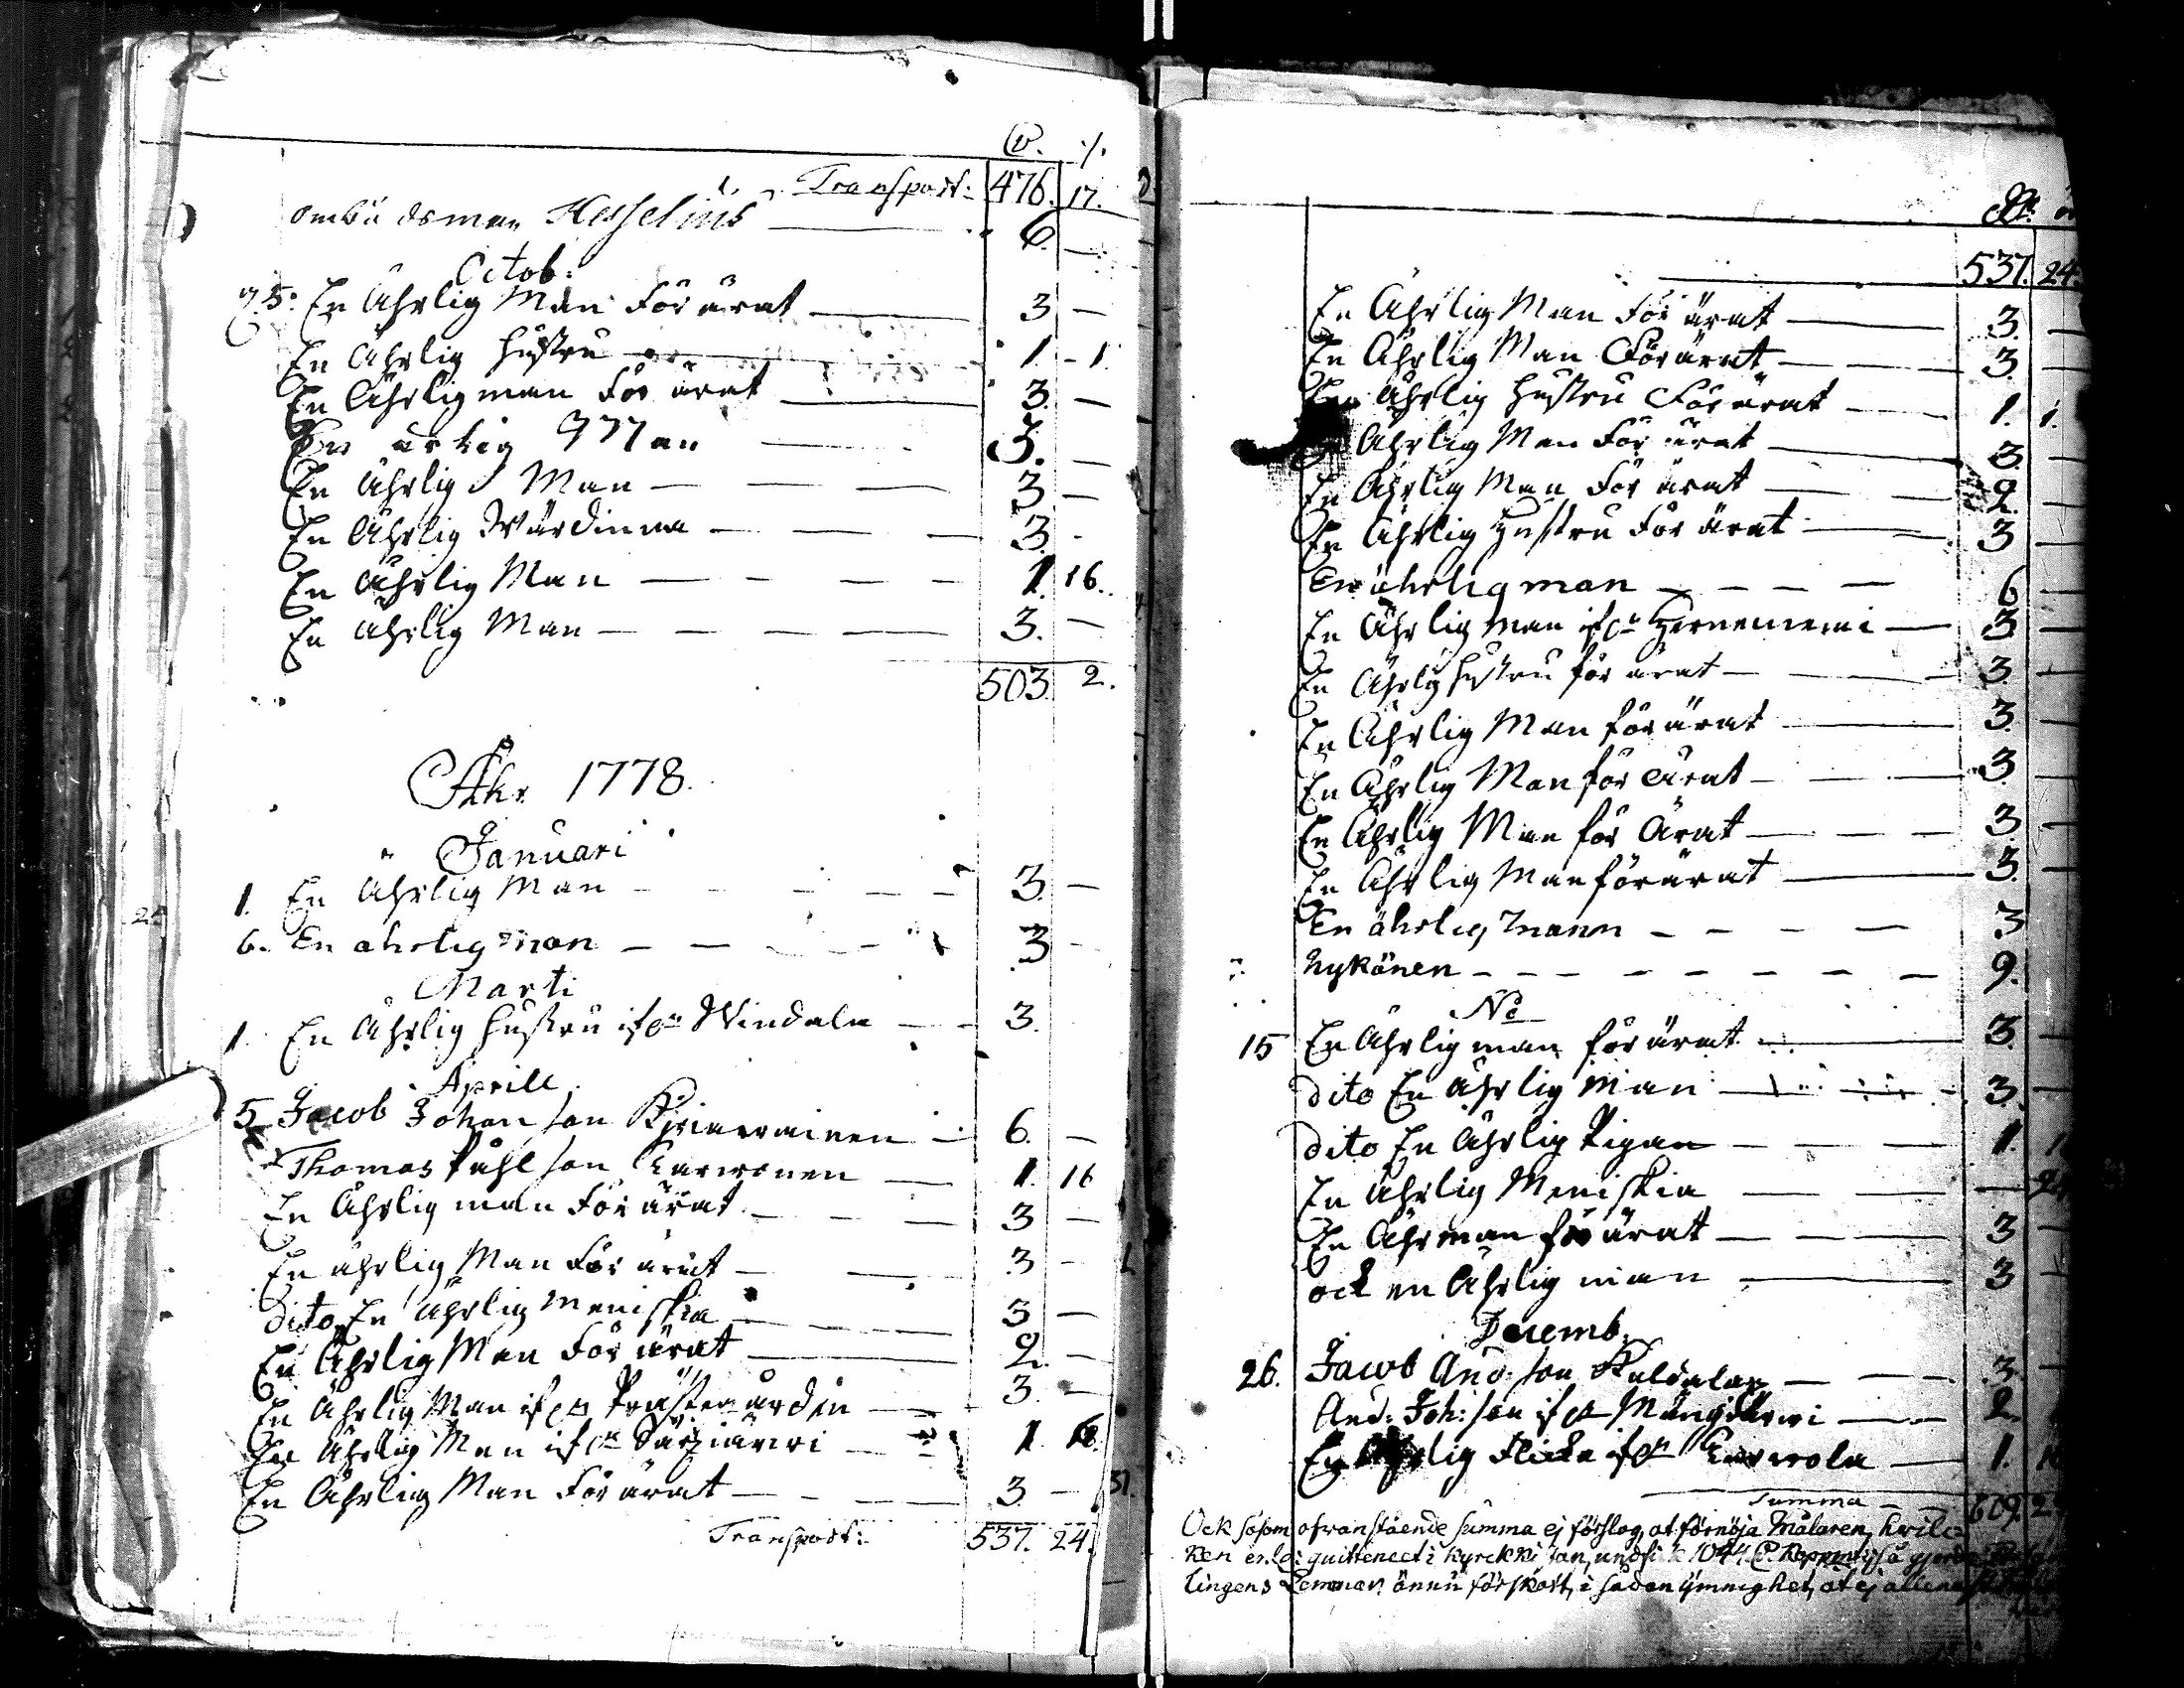 Transport: 476. 17.
ombudsman Hesselius 6. —
Octob:
5: En Ährlig Man För ärat 3 —
En Ährlig Hustru 1 - 1
En Ährlig man För ärat 3. —
En ärlig Man 3. —
En Ährlig Man 3 —
En Ährlig Wärdinna 3. -
En Ährlig Man 1. 16.
En Ährlig Man 3. —
503. 2.
Åhr 1778.
Januari
1. En Ährlig Man 3. —
6. En ahrlig man 3 -
Marti
1. En Ährlig Hustru ifrn Windala 3.
Aprill
5 Jacob Johan son 6. —
Thomas Påhl son Karwonen 1. 16
En Ährlig man För ärat 3 —
En ährlig Man För ärat 3 -
dito En Ährlig Meniskia 3 —
En Ährlig Man För ärat 2. —
En Ährlig Man ifrn Prästegården 3. —
En Ährlig Man ifrn 1. 16.
En Ährlig Man För ärat 3. —
Transport: 537. 24.
537. 24.
En Ährlig Man För ärat 3. —
En Ährlig Man Förärat 3. —
En Ährlig Hustru Förärat 1. 1.
En Ährlig Man För ärat 3. —
En Ährlig Man För ärat 2. —
En Ährlig Hustru För ärat 3 —
En ährlig man 6 —
En Ährlig man ifrn Hernememi 3 —
En Ährlig Hustru för ärat 3. —
En Ährlig Man förärat 3. —
En Ährlig Man för ärat 3. —
En Ährlig Man för Ärat 3 —
En Ährlig Man förärat 3. —
En ährlig mann 3
Nykänen 9.
No
15 En Ährlig man förärat 3. —
dito En Ährlig Man 3. —
dito En Ährlig Pigan 1.
En Ährlig Meniskia —
En Ähr man för ärat 3 —
ock en Ährlig man 3 —
Decemb.
26. Jacob And: son 3. —
And: Joh: son ifrn 2.
En Ährlig Flicka ifrn Karwola 1.
Summa 609. 2
Ock såsom ofvanstående summa ej förslog at förnöja Målaren, hvilc-
ken quittenect i Kyrckki
lingens ännu förskått, i sådan ymnighet, at ej allena